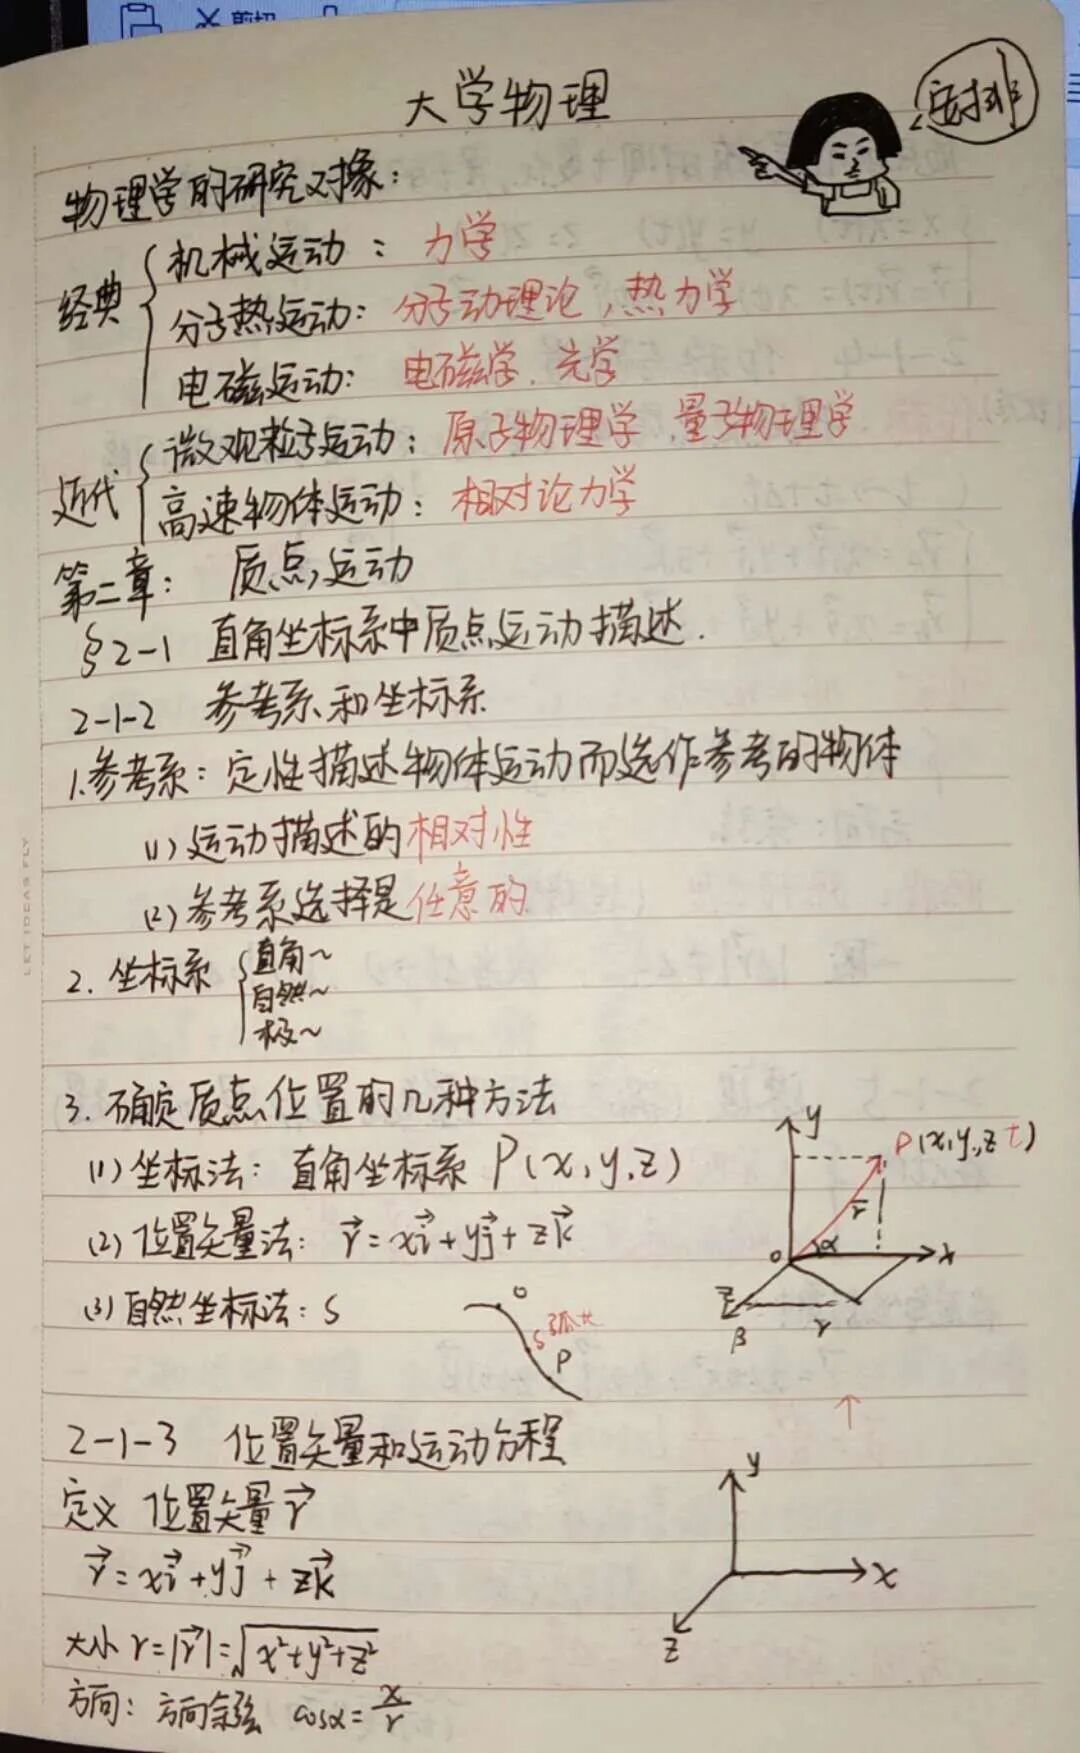 剪切
大学物理
安排
物理学的研究对象：
经典
机械运动：力学
分子热运动：分子动理论，热力学
电磁运动：电磁学、光学
近代
微观粒子运动：原子物理学 量子物理学
高速物体运动：相对论力学
第二章：质点运动
§2-1 直角坐标系中质点运动描述.
2-1-2 参考系和坐标系
1.参考系：定性描述物体运动而选作参考的物体
(1) 运动描述的相对性
(2) 参考系选择是任意的
2. 坐标系
直角~
自然~
极~
3. 确定质点位置的几种方法
(1) 坐标法：直角坐标系 P(x,y,z)
(2) 位置矢量法：r⃗=xi⃗+yj⃗+zk⃗
(3) 自然坐标法：S
O
S 弧长
P
y
P(x,y,z t)
r⃗
O
α
x
z
β
γ
2-1-3 位置矢量和运动方程
定义 位置矢量r⃗
r⃗=xi⃗+yj⃗+zk⃗
大小 r=|r⃗|=√(x²+y²+z²)
方向：方向余弦 cosα=x/r
y
x
z
LET IDEAS FLY